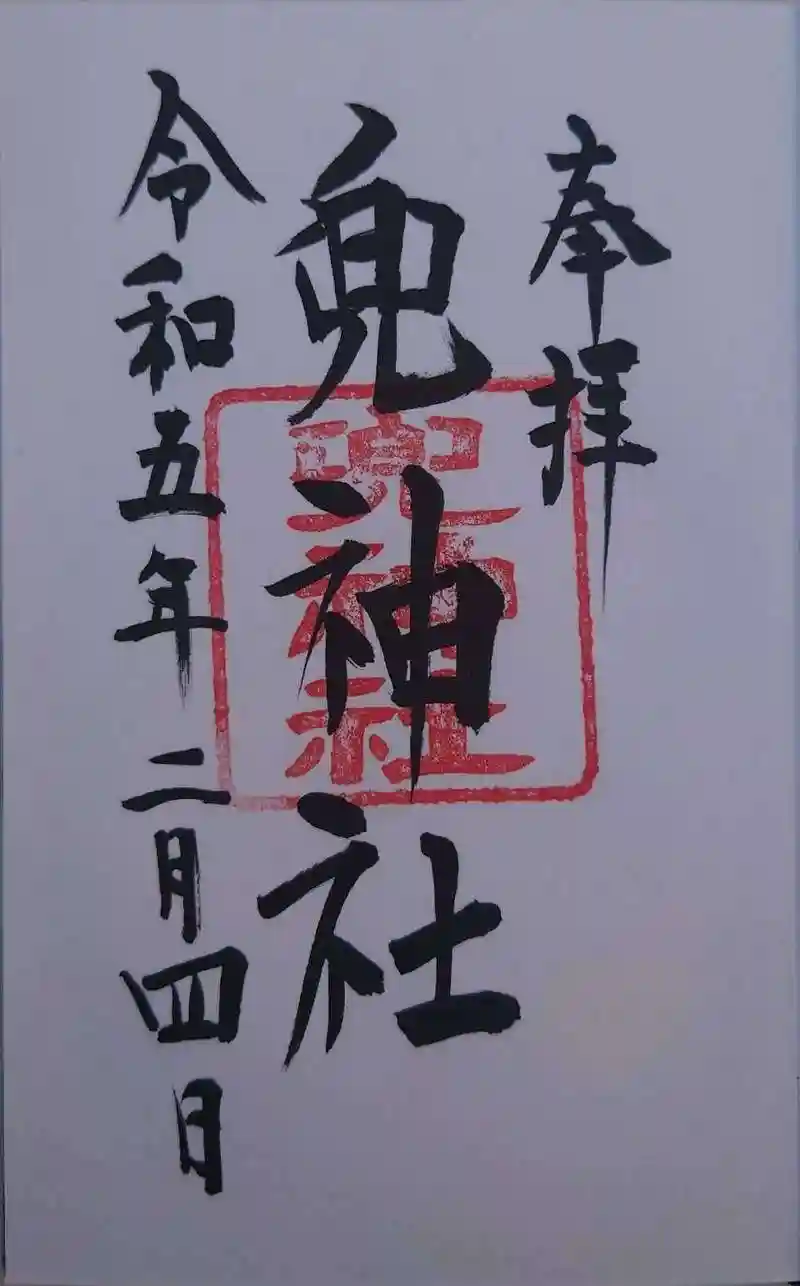 奉拝
兜神社
兜神社
令和五年二月四日